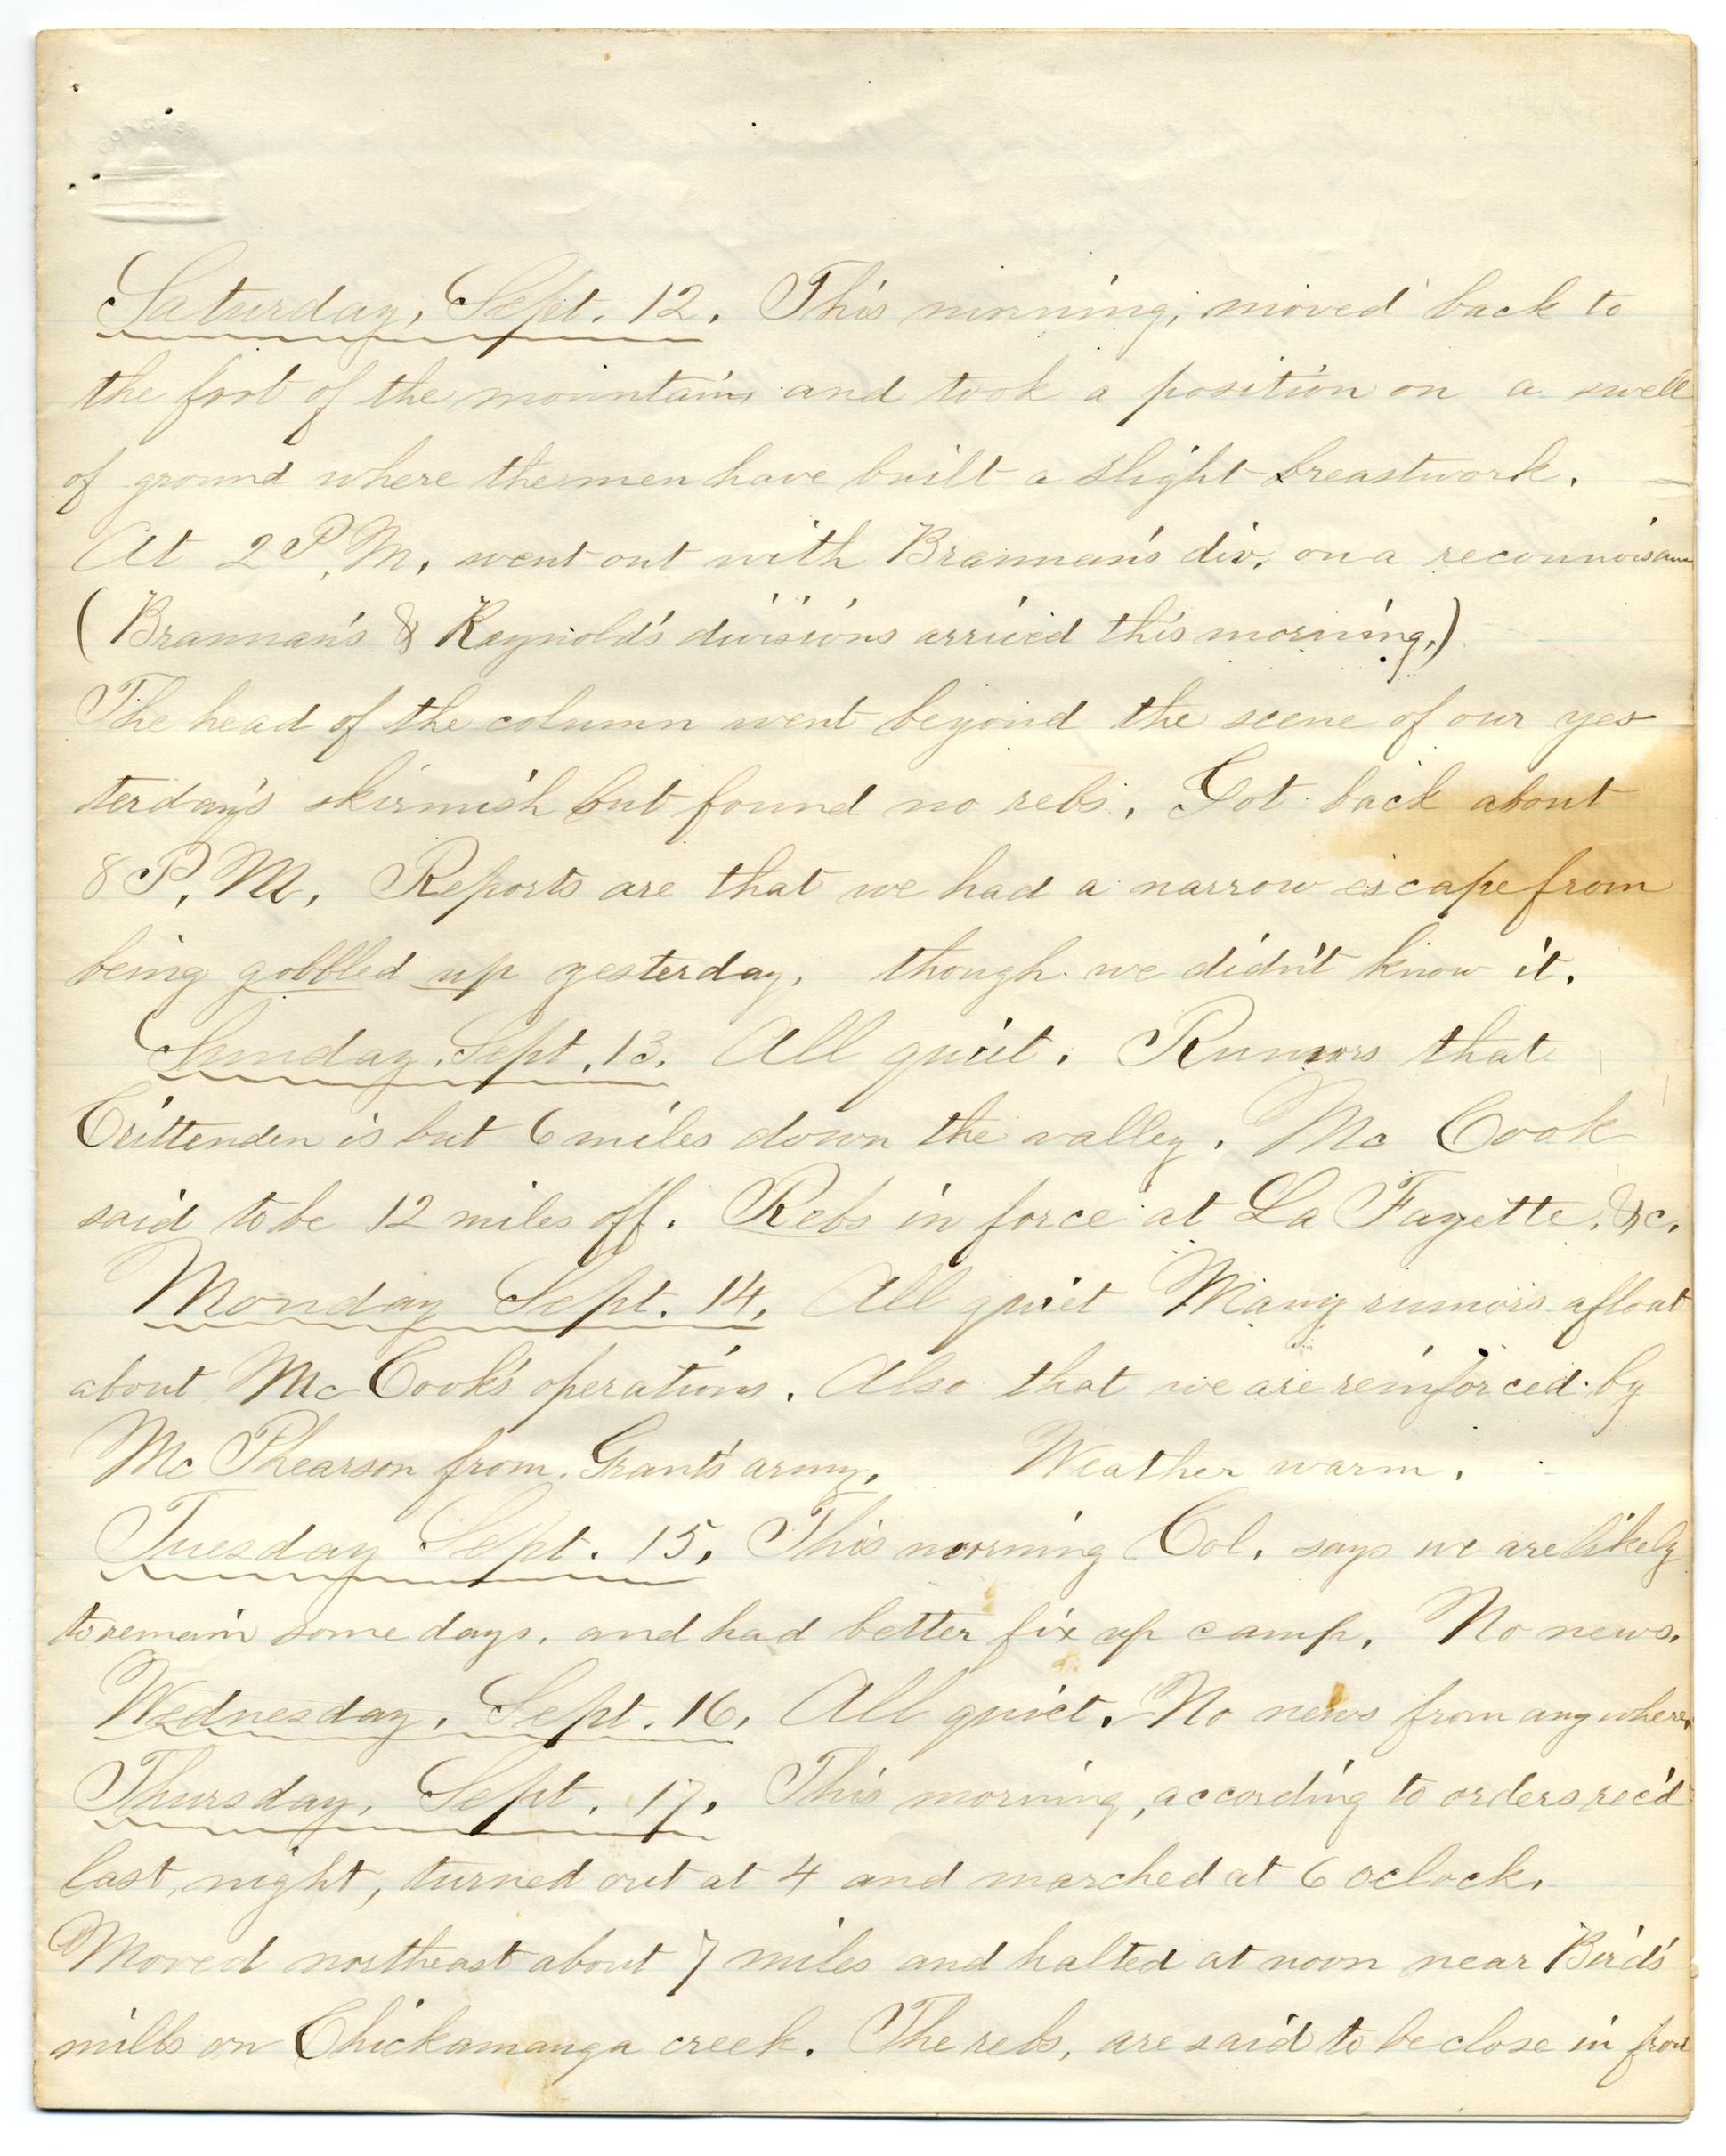 CONGRESS
Saturday, Sept. 12. This morning, moved back to
the foot of the mountain, and took a position on a swell
of ground where the men have built a slight breastwork.
At 2 P.M. went out with Brannan's div. on a reconnoisance
(Brannan's & Reynold's divisions arrived this morning.)
The head of the column went beyond the scene of our yes
terday's skirmish but found no rebs. Got back about
8 P.M. Reports are that we had a narrow escape from
being gobbled up yesterday, though we didn't know it.
Sunday, Sept. 13. All quiet. Rumors that
Crittenden is but 6 miles down the valley. Mc Cook
said to be 12 miles off. Rebs in force at La Fayette, &c.
Monday Sept. 14. All quiet Many rumors afloat
about Mc Cook's operations. Also that we are reinforced by
Mc Phearson from Grant's army. Weather warm.
Tuesday Sept. 15. This morning Col. says we are likely
to remain some days, and had better fix up camp. No news.
Wednesday, Sept. 16. All quiet. No news from anywhere.
Thursday, Sept. 17. This morning, according to orders rec'd
last night, turned out at 4 and marched at 6 oclock.
Moved northeast about 7 miles and halted at noon near Bird's
mills on Chickamauga creek. The rebs, are said to be close in front